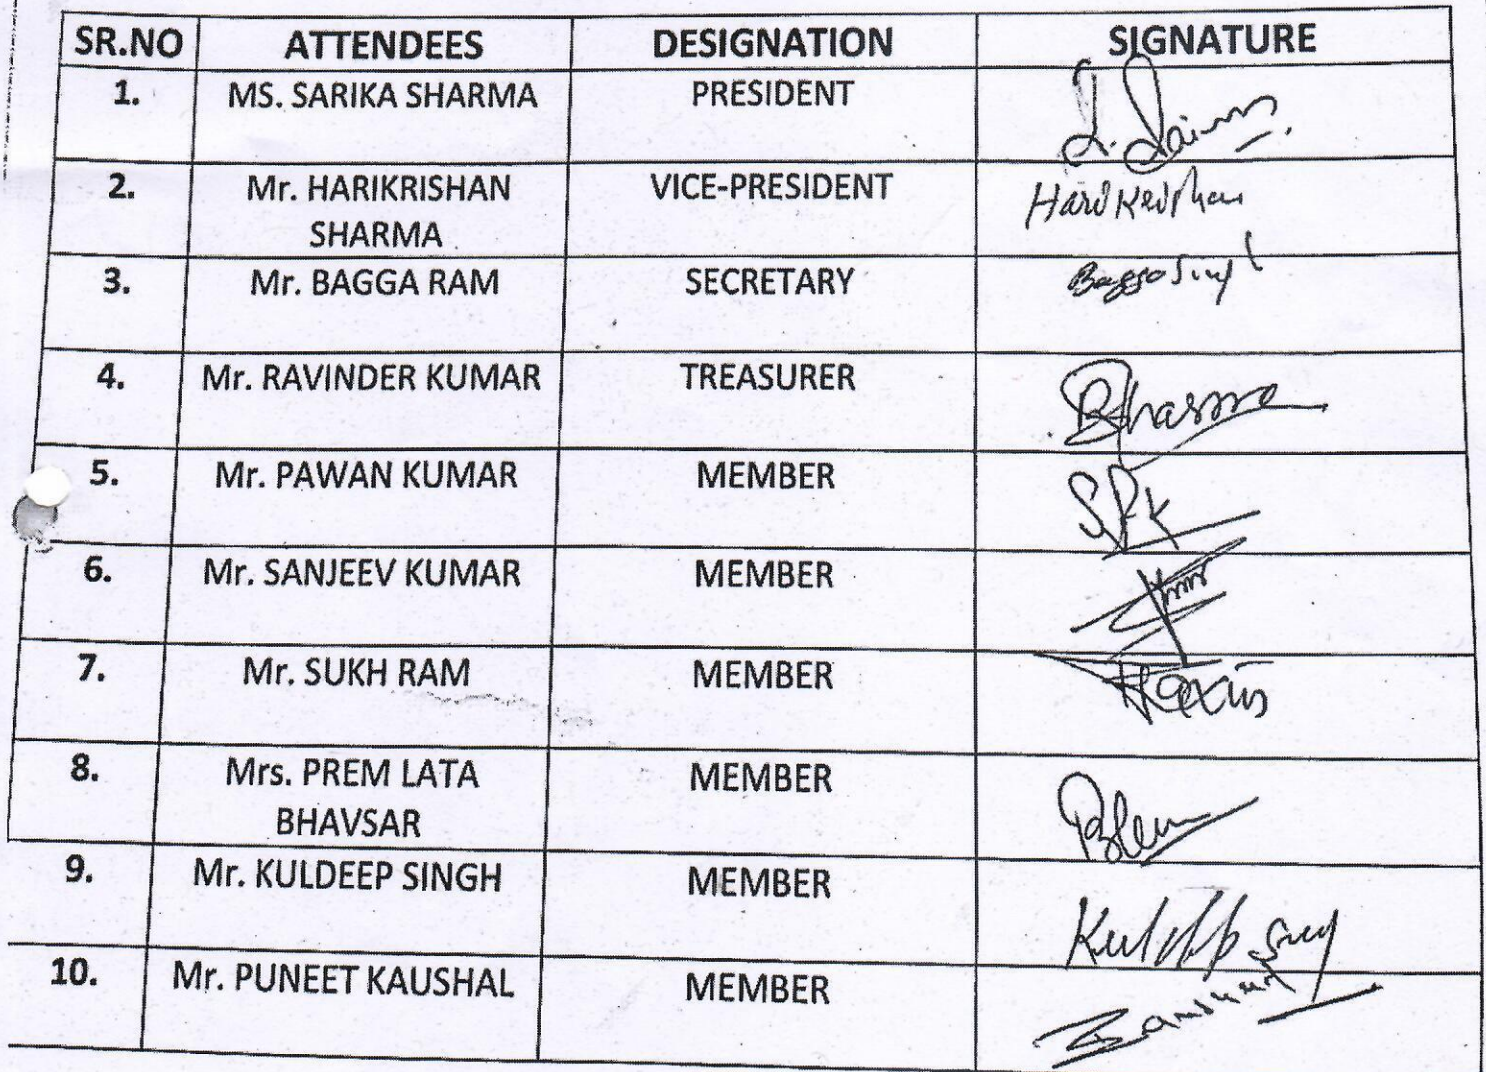 SR.NO ATTENDEES DESIGNATION SIGNATURE
1. MS. SARIKA SHARMA PRESIDENT
2. Mr. HARIKRISHAN VICE-PRESIDENT
SHARMA
3. Mr. BAGGA RAM SECRETARY
4. Mr. RAVINDER KUMAR TREASURER
5. Mr. PAWAN KUMAR MEMBER
6. Mr. SANJEEV KUMAR MEMBER
7. Mr. SUKH RAM MEMBER
8. Mrs. PREM LATA MEMBER
BHAVSAR
9. Mr. KULDEEP SINGH MEMBER
10. Mr. PUNEET KAUSHAL MEMBER